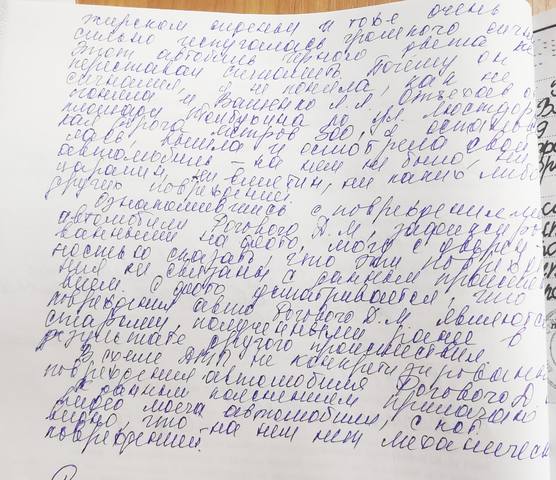 сильно испугалась громкого сигна
Этот автомобиль черного цвета не
переставал сигналить. Почему он
сигналил, я не поняла, как не
поняла и Ващенко Л.Л. Отъехав от
площади Толбухина по ул. Люстдорф
кая дорога метров 300, я останови
лась, вышла и осмотрела свой
автомобиль – на нем не было, ни
царапин, ни вмятин, ни каких либо
других повреждений.
Ознакомившись с повреждениями
автомобиля Богового Д.М., зафиксиро
ванными на фото, могу с уверен
ностью сказать, что эти повреж
ния не связаны с данным происшест
вием. С фото усматривается, что
повреждения авто Богового Д.М. являются
старыми полученными ранее в
результате другого происшествия.
В схеме ДТП не конкретизированы
повреждения автомобиля Богового Д
К данным пояснениям прилагаю
видео моего автомобиля, с кот
видно, что на нем нет механическ
повреждений.